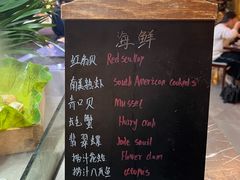 海鲜
红扇贝 Red scallop
南美熟虾 South American cooked
青口贝 Mussel
毛蟹 Hairy crab
翡翠螺 Jade snail
捞汁花蛤 Flower clam
捞汁八爪鱼 octopus